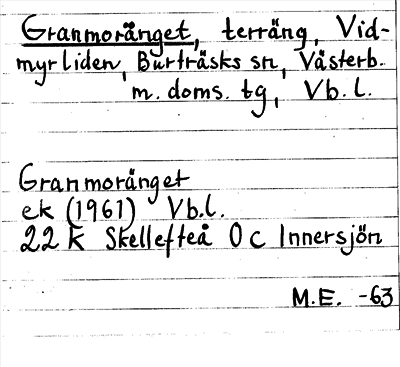 Granmoränget, terräng, Vid-
myrliden, Burträsks sn, Västerb.
m. doms. tg, Vb.l.
Granmoränget
ek (1961) Vb.l.
22 K Skellefteå 0 c Innersjön
M.E. -63